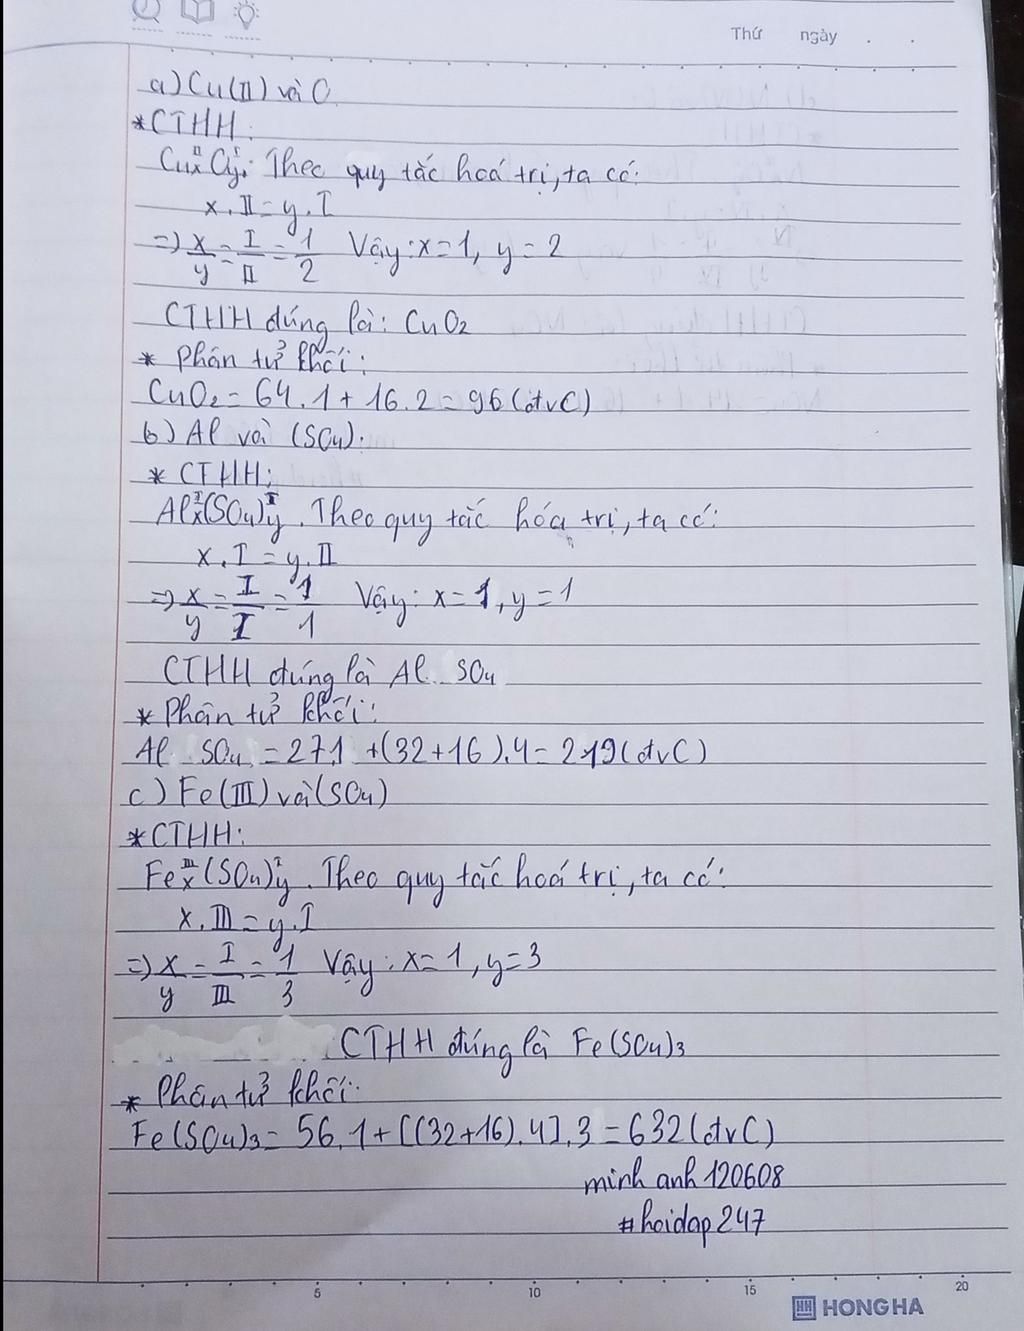 Thứ ngày . .
a) Cu(II) và O
*CTHH:
CuₓᴵᴵOyᴵ. Theo quy tắc hoá trị, ta có:
x. II = y. I
=> x/y = I/II = 1/2 Vậy: x = 1, y = 2
CTHH đúng là: CuO₂
* Phân tử khối:
CuO₂ = 64.1 + 16.2 = 96 (đvC)
b) Al và (SO₄).
* CTHH:
Alₓᴵ(SO₄)yᴵ. Theo quy tắc hóa trị, ta có:
x. I = y. II
=> x/y = I/I = 1/1 Vậy: x = 1, y = 1
CTHH đúng là Al SO₄
* Phân tử khối:
Al SO₄ = 27.1 + (32+16).4 = 219 (đvC)
c) Fe(III) và (SO₄)
*CTHH:
Feₓᴵᴵᴵ(SO₄)yᴵ. Theo quy tắc hoá trị, ta có:
x. III = y. I
=> x/y = I/III = 1/3 Vậy: x = 1, y = 3
CTHH đúng là Fe(SO₄)₃
* Phân tử khối:
Fe(SO₄)₃ = 56.1 + [(32+16).4].3 = 632 (đvC)
minh anh 120608
#hoidap247
5 10 15 20
HH HONG HA